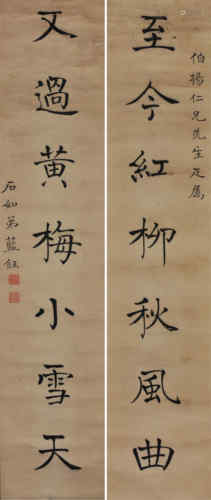 伯揚仁兄先生疋屬
至今紅柳秋風曲
又過黃梅小雪天
石如弟藍鈺